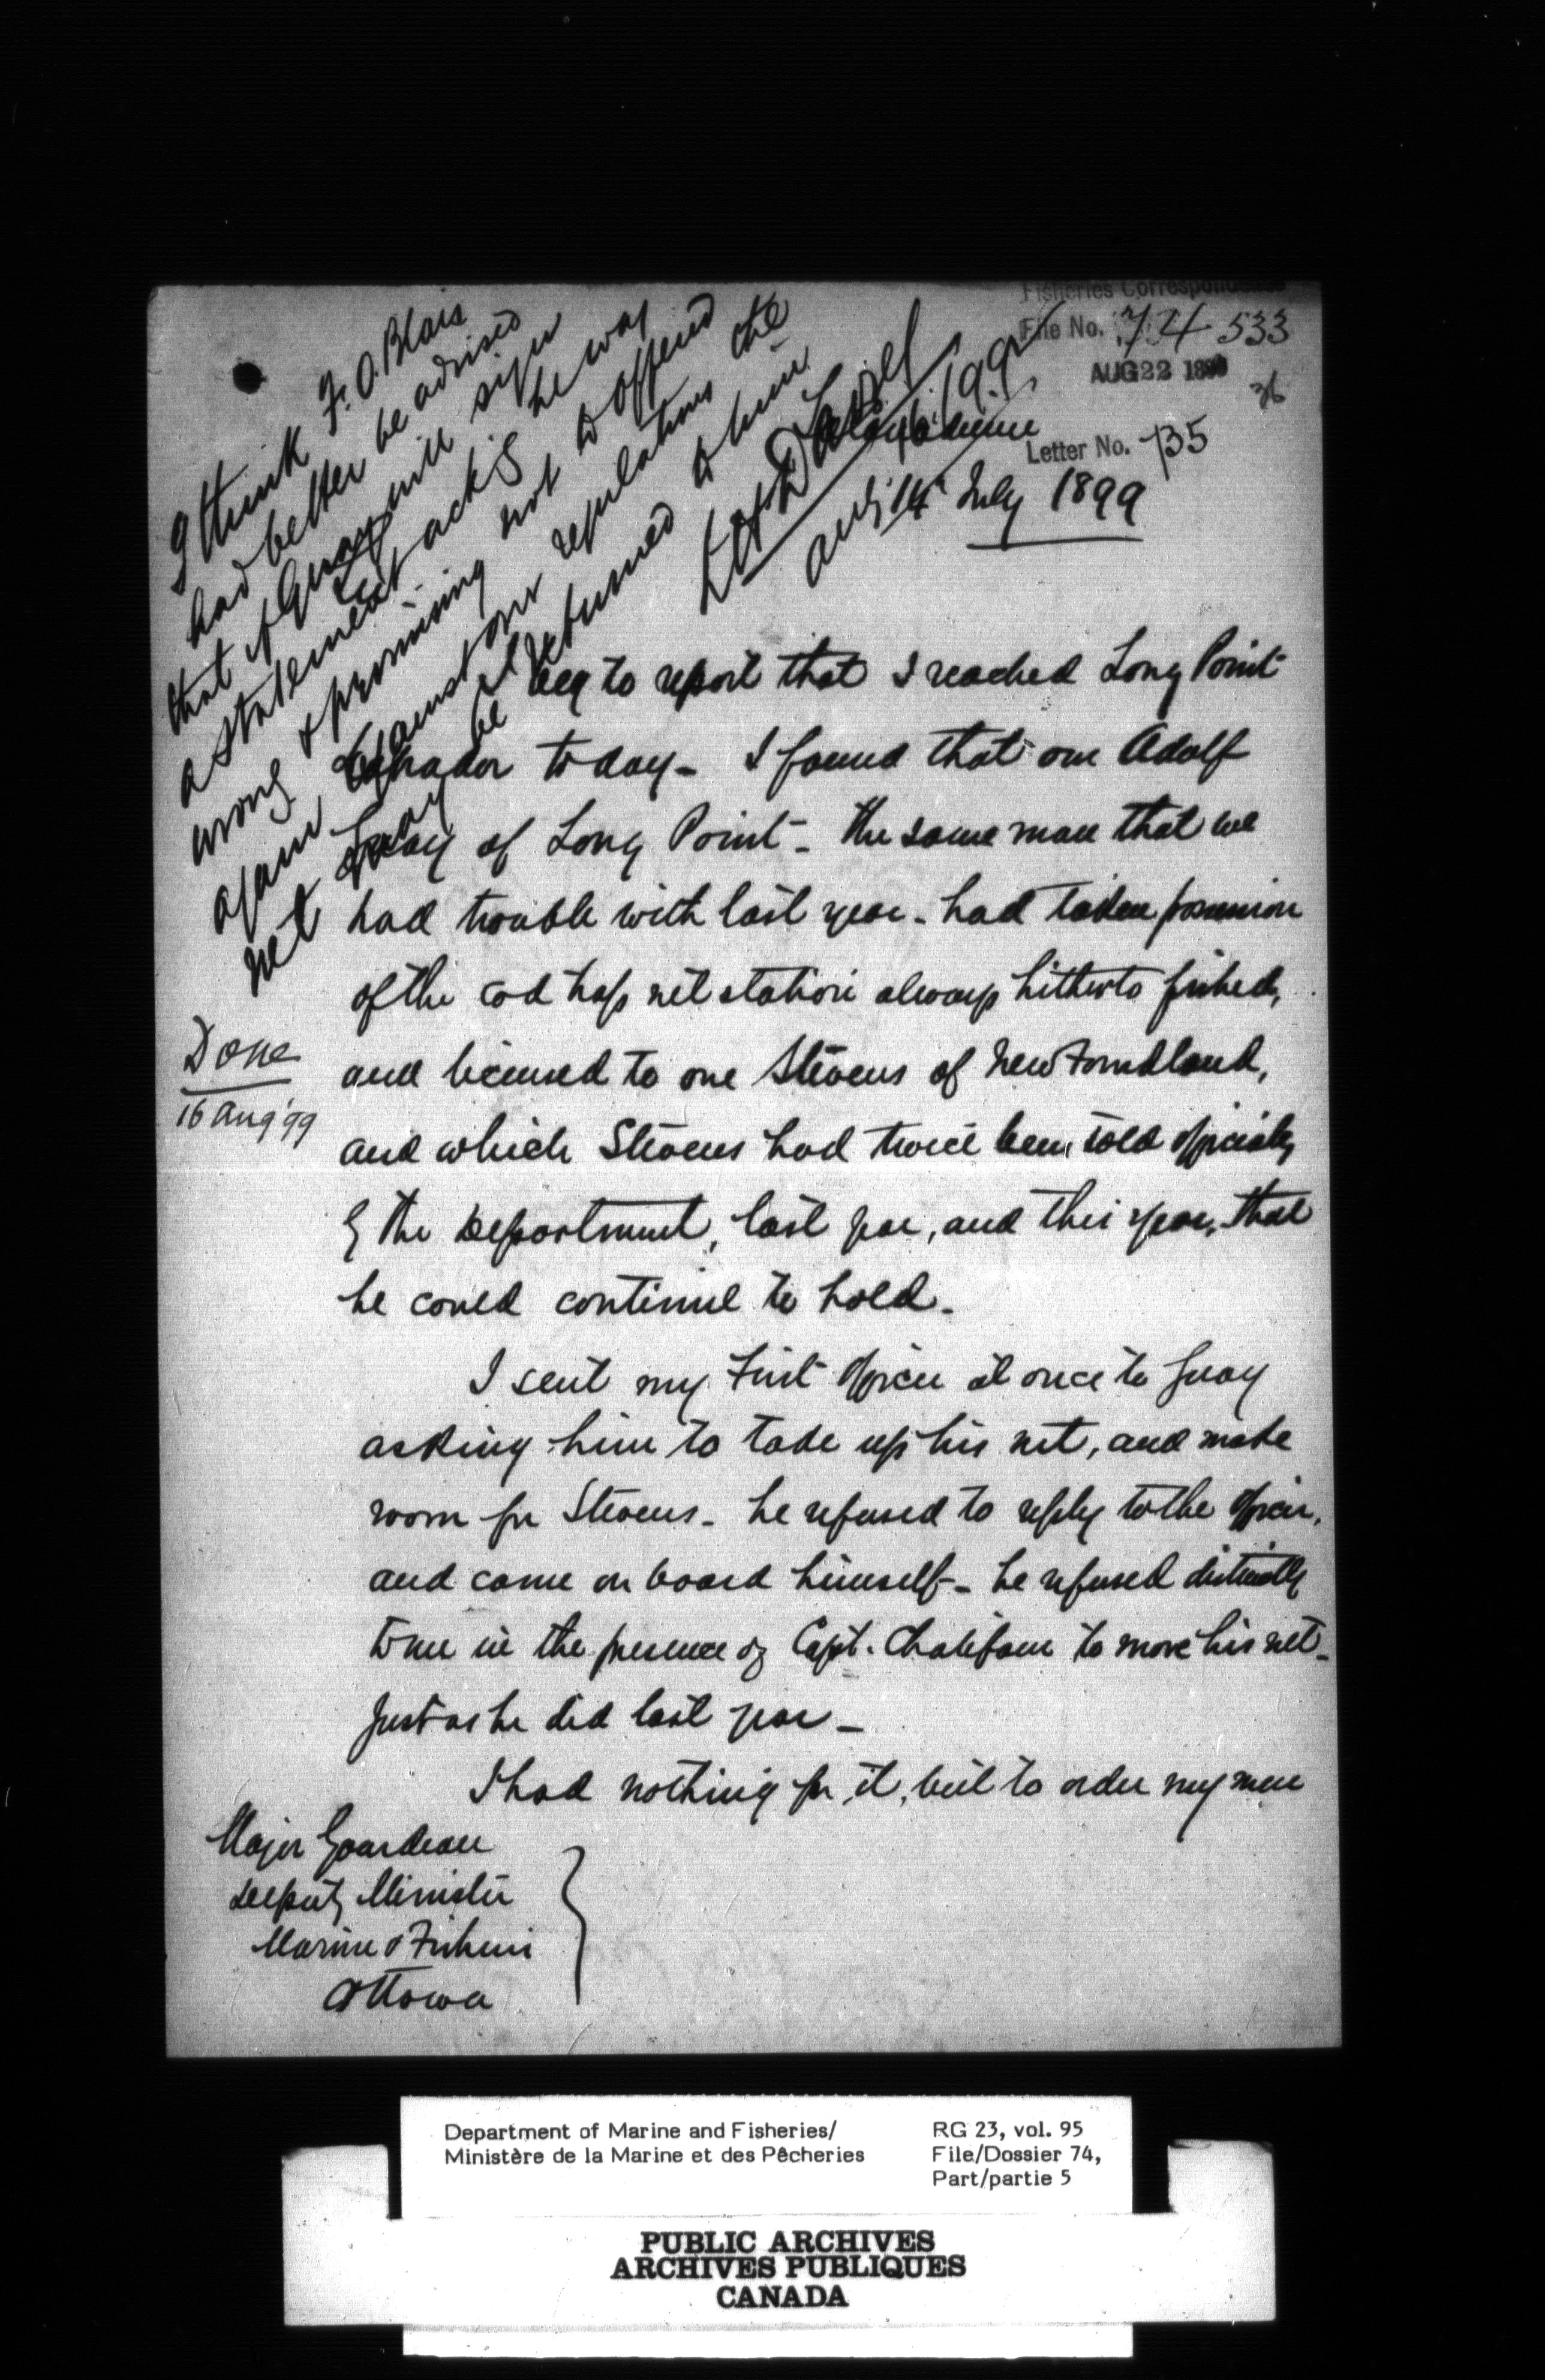 Fisheries Correspondence
File No. 74 533
AUG 22 1899
36
Letter No. 735
14 July 1899
I think F. O. Blais
had better be advised
that if Guay will sign
a statement ackg he was
wrong & promising not to offend
again against our regulations the
net may be returned to him
Done
16 Aug '99
beg to report that I reached Long Point
Labrador today - I found that one Adolf
Guay of Long Point - the same man that we
had trouble with last year - had taken possession
of the cod trap net station always hitherto fished,
and licensed to one Stevens of Newfoundland,
and which Stevens had twice been told officially
by the Department, last year, and this year, that
he could continue to hold.
I sent my First Officer at once to Guay
asking him to take up his net, and make
room for Stevens - he refused to reply to the officer,
and came on board himself - he refused distinctly
to me in the presence of Capt. Chalifour to move his net -
just as he did last year -
I had nothing for it, but to order my men
Major Gourdeau
Deputy Minister
Marine & Fisheries
Ottawa
Department of Marine and Fisheries/
Ministère de la Marine et des Pêcheries
RG 23, vol. 95
File/Dossier 74,
Part/partie 5
PUBLIC ARCHIVES
ARCHIVES PUBLIQUES
CANADA